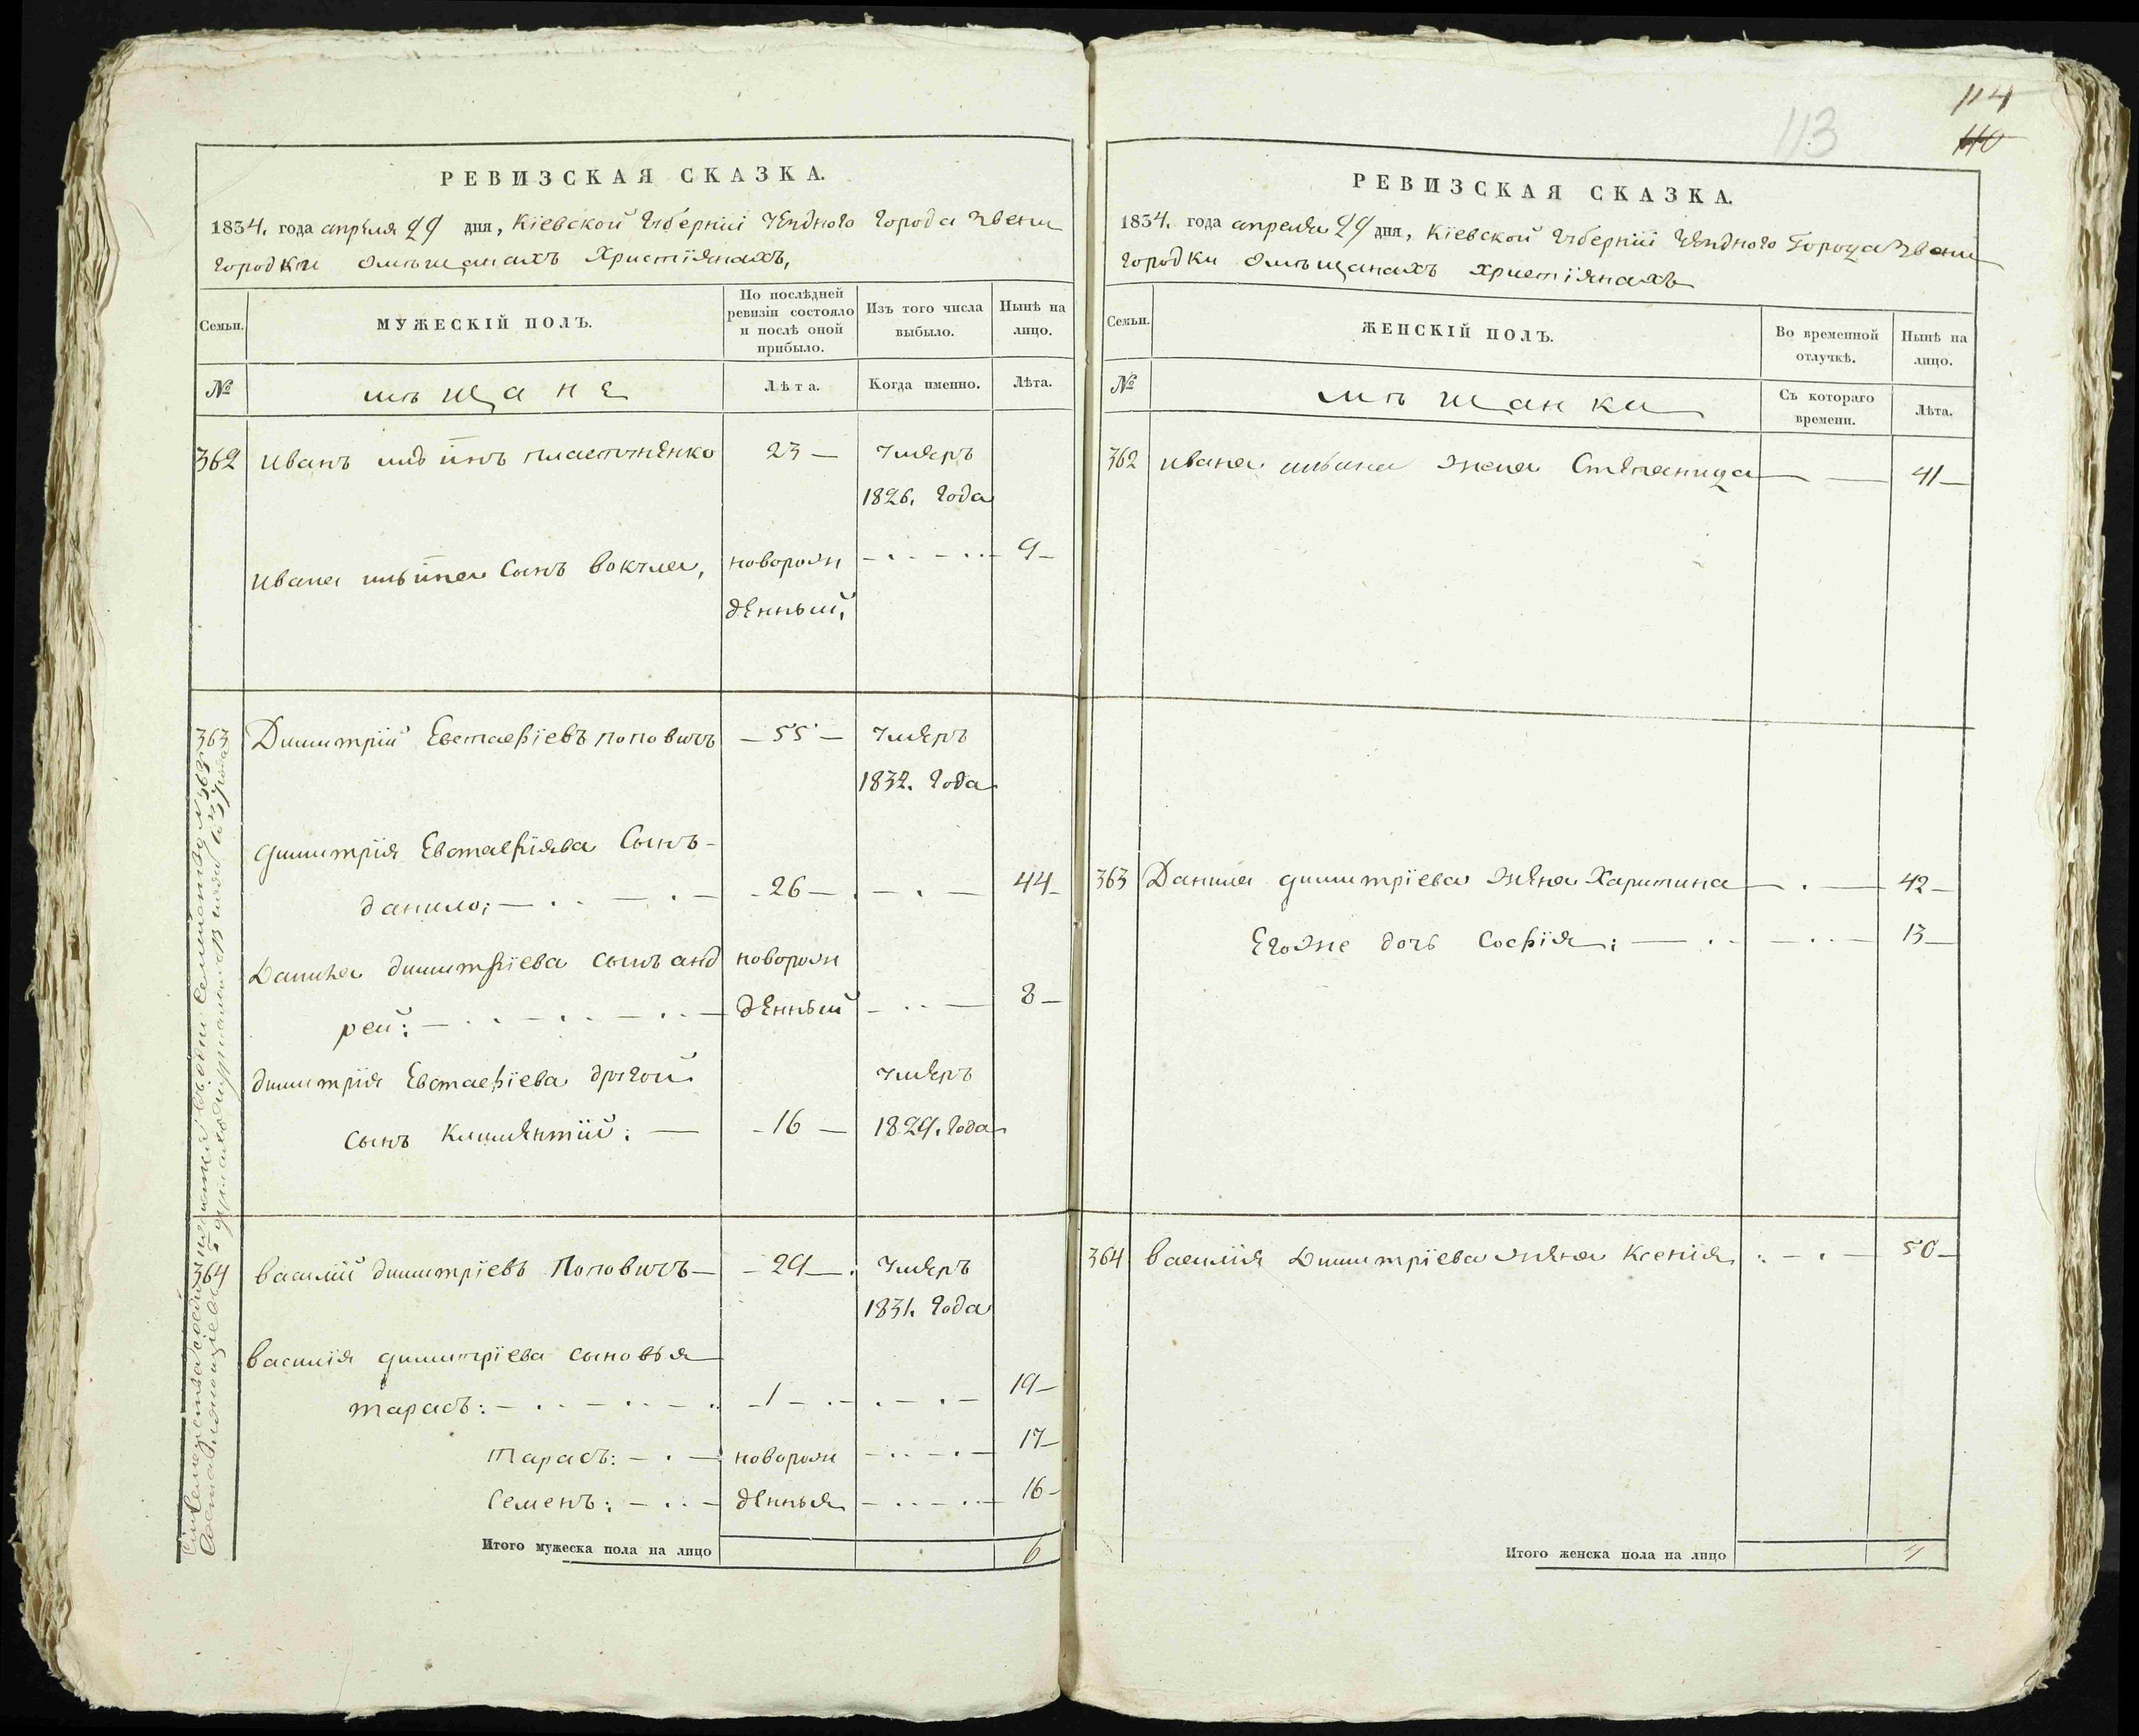 114
113
110
РЕВИЗСКАЯ СКАЗКА.
1834. года апреля 29 дня, Кіевской Губерніи Уездного города Звени
городки омѣщанахъ Християнахъ,
Семьи.
МУЖЕСКІЙ ПОЛЪ.
По послѣдней ревизіи состояло и послѣ оной прибыло.
Изъ того числа выбыло.
Нынѣ на лицо.
№
мѣщане
Лѣта.
Когда именно.
Лѣта.
362 Иванъ 23 — Умеръ
1826. года
Ивана сынъ новорож — 9 —
денный,
363 Димитрій Евстафіевъ Поповичъ — 55 — Умеръ
1832. года
Димитрія Евстафіева Сынъ —
Данило; — 26 — 44 —
Данила димитріева сынъ анд новорож
рей: денный 8 —
димитрія Евстафіева другой Умеръ
сынъ Климентий: — 16 — 1829. года
364 Василій димитріевъ Поповичъ — 29 — Умеръ
1831. года
Василія димитріева сыновья
тарасъ: — 1 — 19 —
Тарасъ: — новорож 17 —
Семенъ: — денныя 16 —
Итого мужеска пола на лицо 6
РЕВИЗСКАЯ СКАЗКА.
1834. года апреля 29 дня, Кіевской Губерніи Уездного Города Звени
городки омѣщанахъ християнахъ
Семьи.
ЖЕНСКІЙ ПОЛЪ.
Во временной отлучкѣ.
Нынѣ на лицо.
№
мѣщанки
Съ котораго времени.
Лѣта.
362 Ивана жена Степанида — 41 —
363 Данила димитріева жена Харитина — 42 —
Егоже дочь Софія: — 13 —
364 Василія Димитріева жена Ксенія: — 50 —
Итого женска пола на лицо